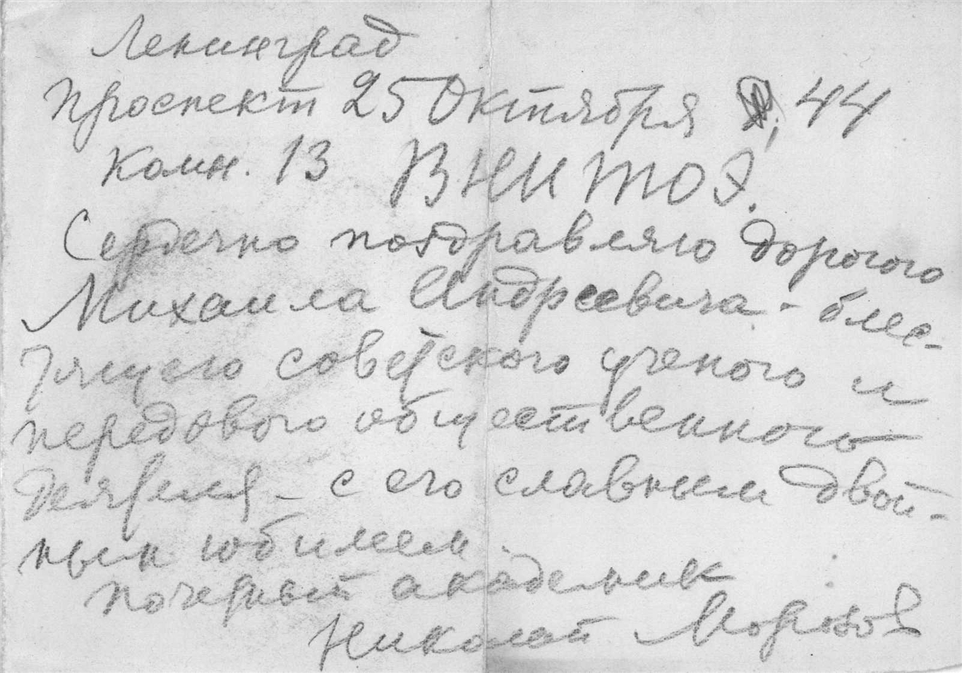 Ленинград
Проспект 25 Октября, 44
комн. 13 ВНИТОЭ.
Сердечно поздравляю дорогого
Михаила Андреевича - блес-
тящего советского ученого и
передового общественного
деятеля - с его славным двой-
ным юбилеем
почетный академик
Николай Морозов